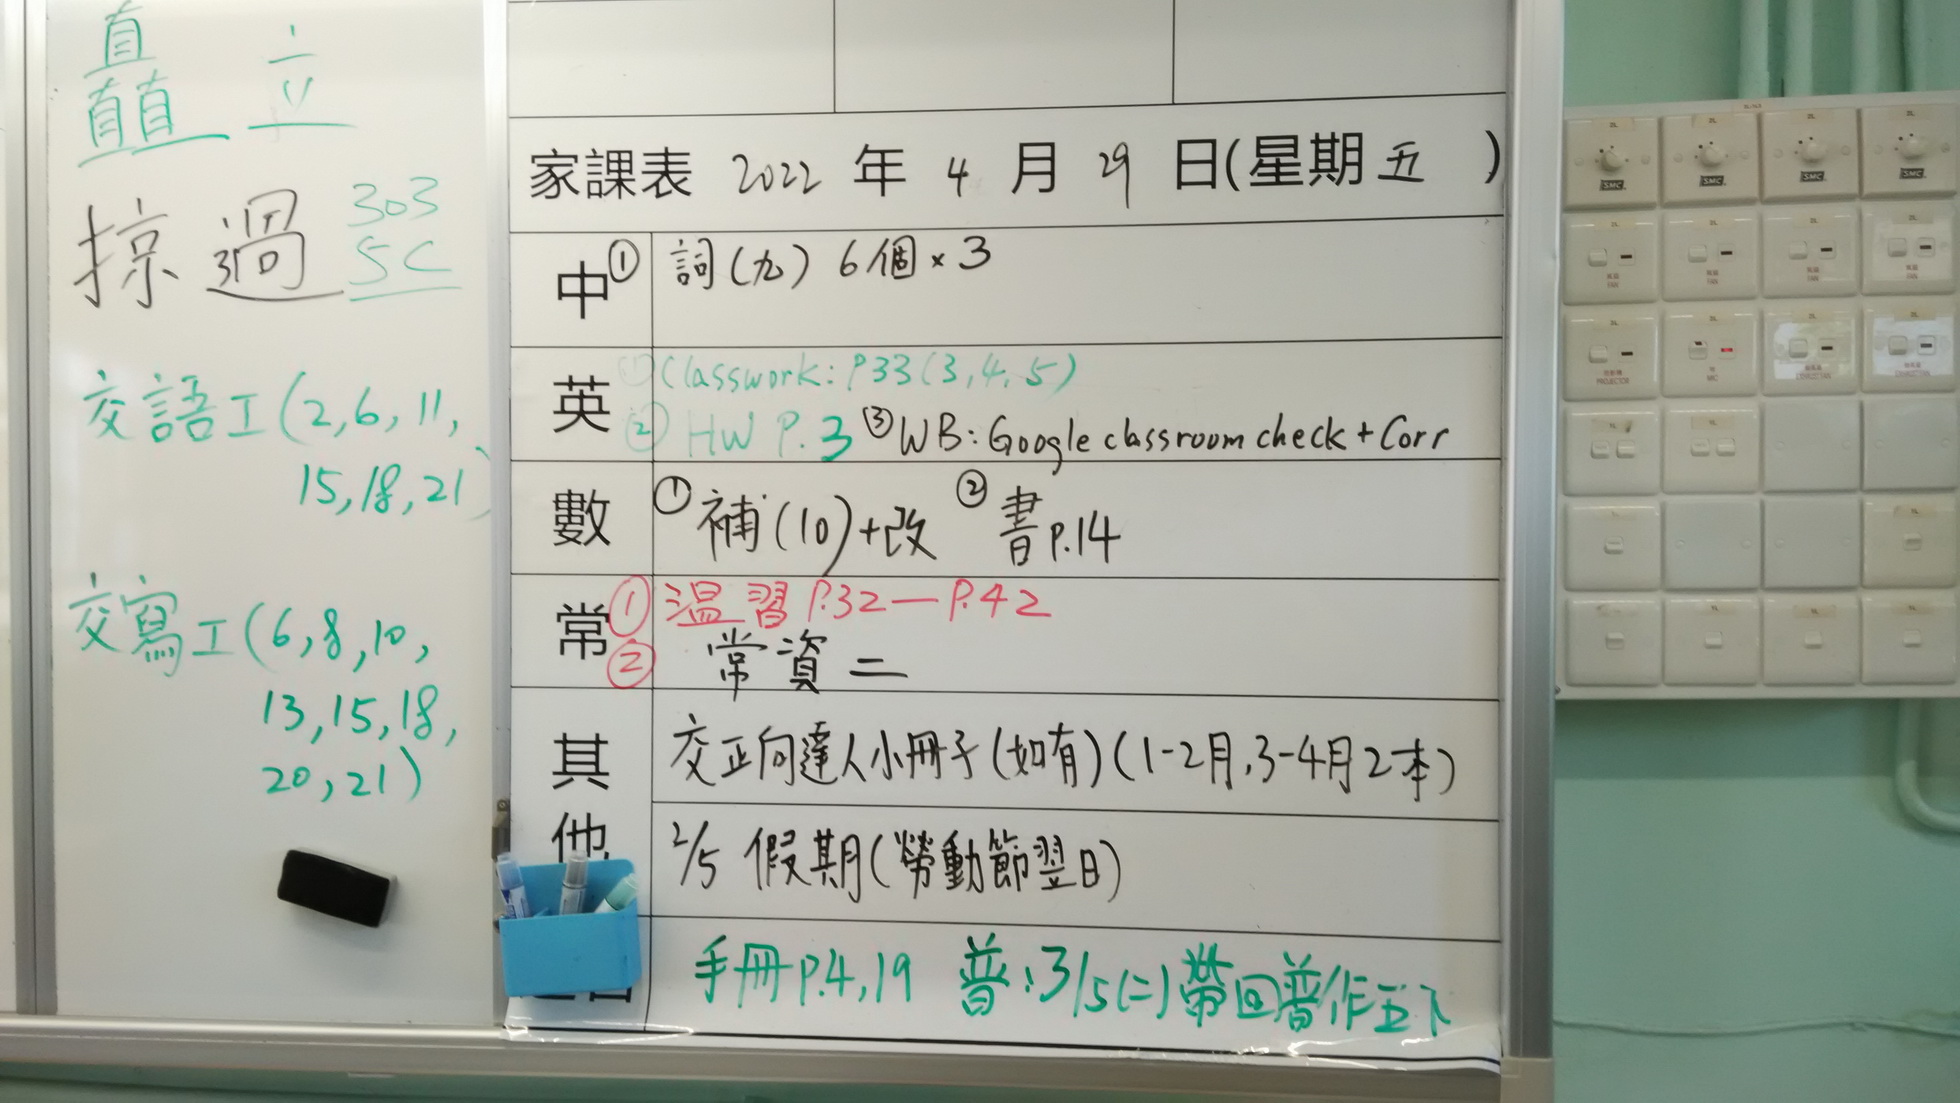 矗立
掠過 303
5C
交語工(2,6,11,
15,18,21)
交寫工(6,8,10,
13,15,18,
20,21)
家課表 2022 年 4 月 29 日(星期五 )
中 ① 詞(九) 6個×3
英 ① Classwork: P33(3,4,5)
② HW P.3 ③ WB: Google classroom check + Corr
數 ① 補(10)+改 ② 書P.14
常 ① 溫習P.32—P.42
② 常資二
其他 交正向達人小冊子(如有)(1-2月,3-4月2本)
2/5 假期(勞動節翌日)
手冊P.4,19 普:3/5(二)帶回普作五下
SMC SMC SMC SMC
FAN FAN FAN FAN
PROJECTOR MIC